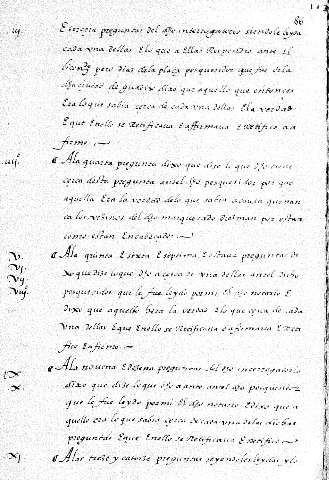 86
iij. E tercera preguntas del dho interrogatorio siendole leyda
cada vna dellas E lo que a Ellas Respondio ante el
licenᵈᵒ pero dias de la plaça pesquesidor que fue de la
dha ciudad de guadix dixo que aquello que entonces
Era lo que sabia cerca de cada vna dellas E la verdad
E que En ello se Retificaua E afirmaua E Retifico E a
firmo.
iiijº A la quarta pregunta dixo que dize lo que dho tiene
cerca desta pregunta antel dho pesquesidor por que
aquella Era la verdad de lo que sabia
ca los vezinos del dho marquesado por estar
como estan Encabeçados
V. A la quinta E sesta E setima E octaua preguntas di
Vj. xo que dize lo que dho a cerca de vna dellas antel dicho
Vij. pesquesidor que le fue leydo por mi El dho notario E
Viij. dixo que aquello hera la verdad E lo que cerca de cada
vna dellas E que En ello se Retificaua E afirmaua E Reti
fico E afirmo
IX A la novena E dezena preguntas del dho interrogatorio
X. dixo que dize lo que dho a ante antel dho pesquesidor
que le fue leydo por mi El dho notario E dixo que a
quello era lo que sabia cerca de cada vna de las dichas
preguntas E que En ello se Retificaua E Retifico
Xj A las treze y catorze preguntas seyendole leydas y lo